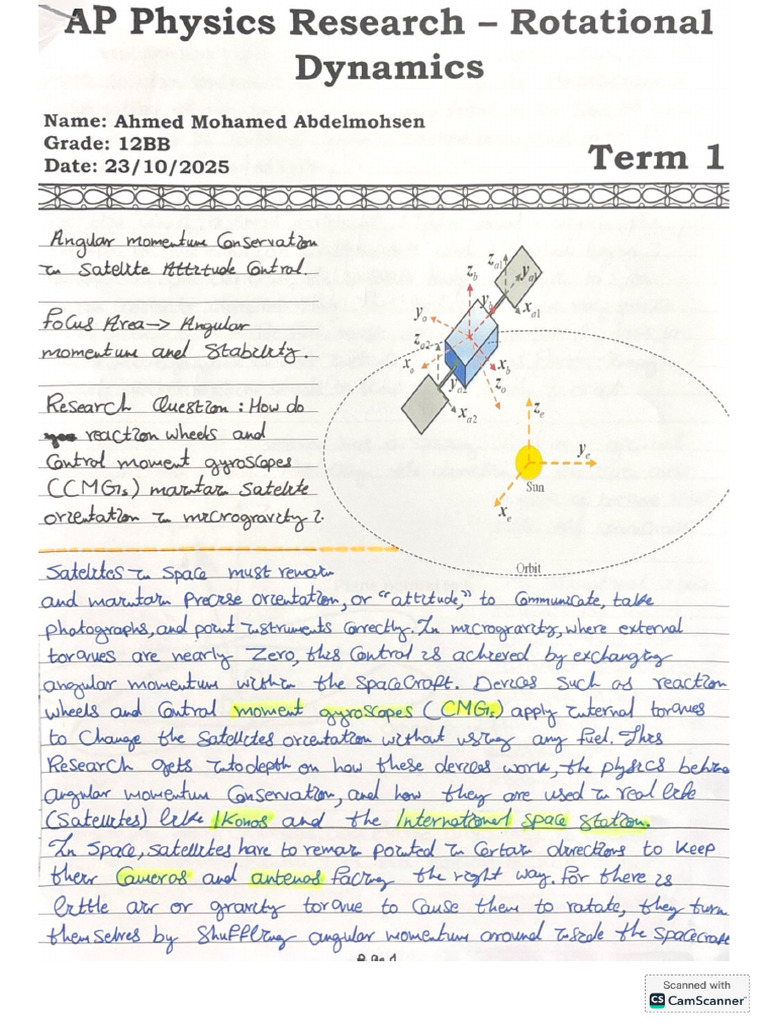 AP Physics Research – Rotational
Dynamics
Name: Ahmed Mohamed Abdelmohsen
Grade: 12BB
Date: 23/10/2025
Term 1
Angular momentum Conservation
in Satellite Attitude Control.
Focus Area-> Angular
momentum and Stability.
Research Question: How do
reaction wheels and
Control moment gyroscopes
(CMGs) maintain Satellite
orientation in microgravity?
z_a1
y_a1
x_a1
z_b
y_b
x_b
y_o
z_a2
x_o
y_a2
z_o
x_a2
z_e
y_e
Sun
x_e
Orbit
Satellites in Space must remain
and maintain Precise orientation, or "attitude," to Communicate, take
photographs, and point instruments correctly. In microgravity, where external
torques are nearly Zero, this Control is achieved by exchanging
angular momentum within the spacecraft. Devices Such as reaction
wheels and Control moment gyroscopes (CMGs) apply internal torques
to Change the Satellites orientation without using any fuel. This
Research gets into depth on how these devices work, the physics behind
angular momentum Conservation, and how they are used in real life
(Satellites) like Ikonos and the International Space Station.
In Space, satellites have to remain pointed in Certain directions to Keep
their Cameras and antenas facing the right way. For there is
little air or gravity torque to Cause them to rotate, they turn
themselves by Shuffling angular momentum around inside the spacecraft
Scanned with
CS CamScanner